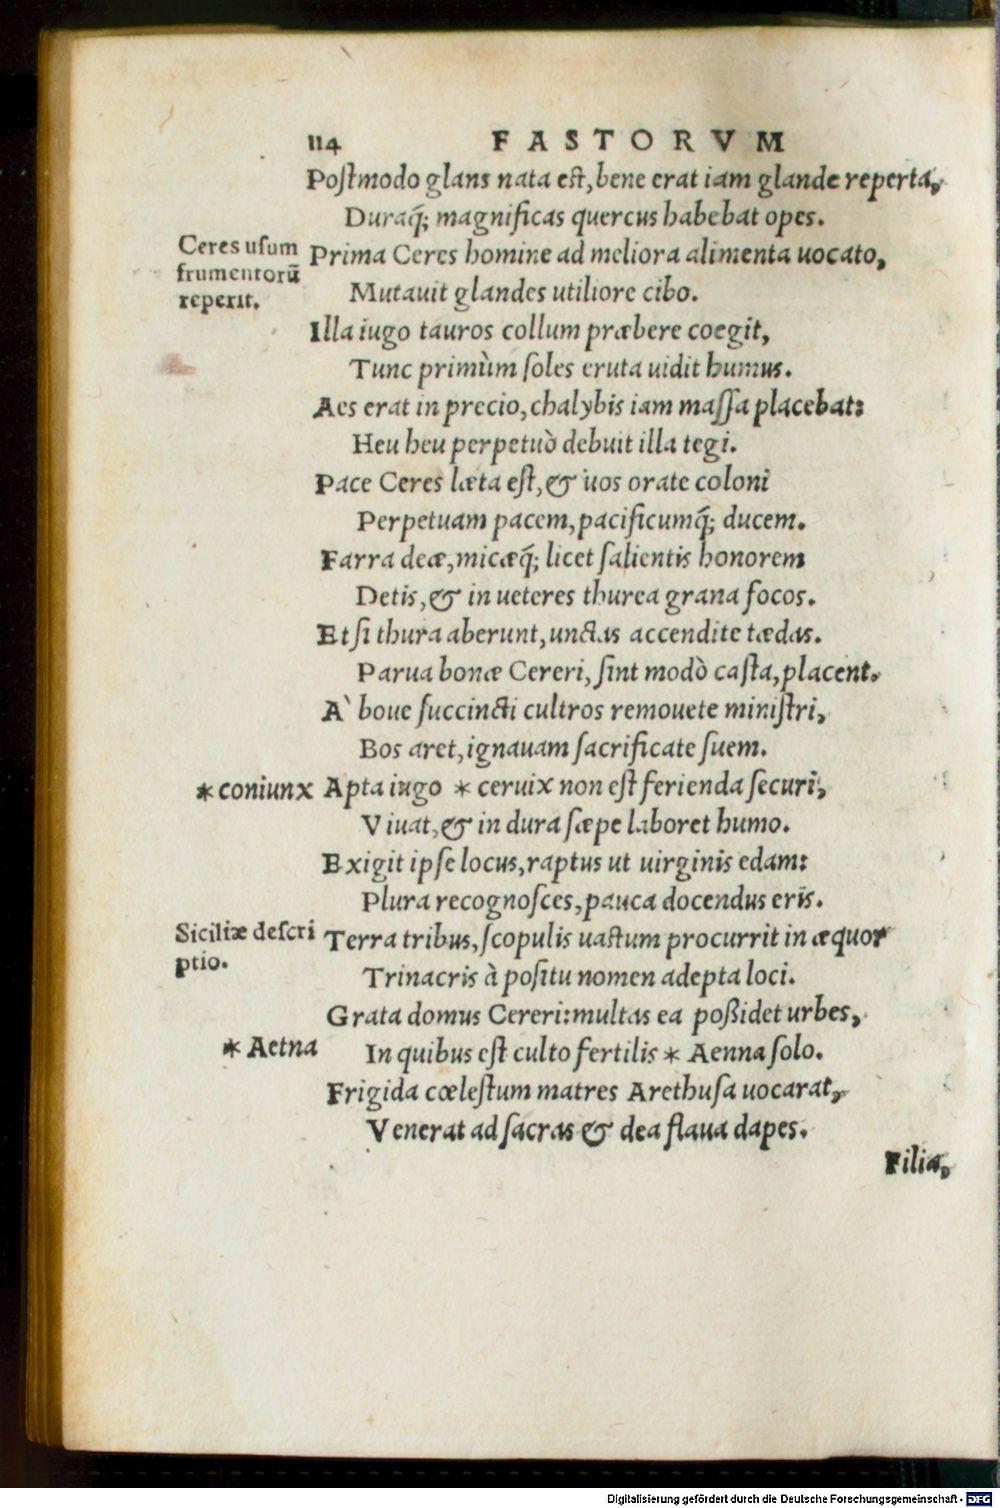 114 FASTORVM
Poſtmodo glans nata eſt, bene erat iam glande reperta,
Duraq́; magnificas quercus habebat opes.
Ceres uſum
frumentorũ
reperit.
Prima Ceres homine ad meliora alimenta uocato,
Mutauit glandes utiliore cibo.
Illa iugo tauros collum præbere coegit,
Tunc primùm ſoles eruta uidit humus.
Aes erat in precio, chalybis iam maſſa placebat:
Heu heu perpetuò debuit illa tegi.
Pace Ceres læta eſt, & uos orate coloni
Perpetuam pacem, pacificumq́; ducem.
Farra deæ, micæq́; licet ſalientis honorem
Detis, & in ueteres thurea grana focos.
Et ſi thura aberunt, unctas accendite tædas.
Parua bonæ Cereri, ſint modò caſta, placent.
A` boue ſuccincti cultros remouete miniſtri,
Bos aret, ignauam ſacrificate ſuem.
*coniunx Apta iugo * ceruix non eſt ferienda ſecuri,
Viuat, & in dura ſæpe laboret humo.
Exigit ipſe locus, raptus ut uirginis edam:
Plura recognoſces, pauca docendus eris.
Siciliæ deſcri
ptio.
Terra tribus, ſcopulis uaſtum procurrit in æquor
Trinacris à poſitu nomen adepta loci.
Grata domus Cereri: multas ea poßidet urbes,
* Aetna In quibus eſt culto fertilis * Aenna ſolo.
Frigida cœleſtum matres Arethuſa uocarat,
Venerat ad ſacras & dea flaua dapes.
Filia,
Digitalisierung gefördert durch die Deutsche Forschungsgemeinschaft - DFG